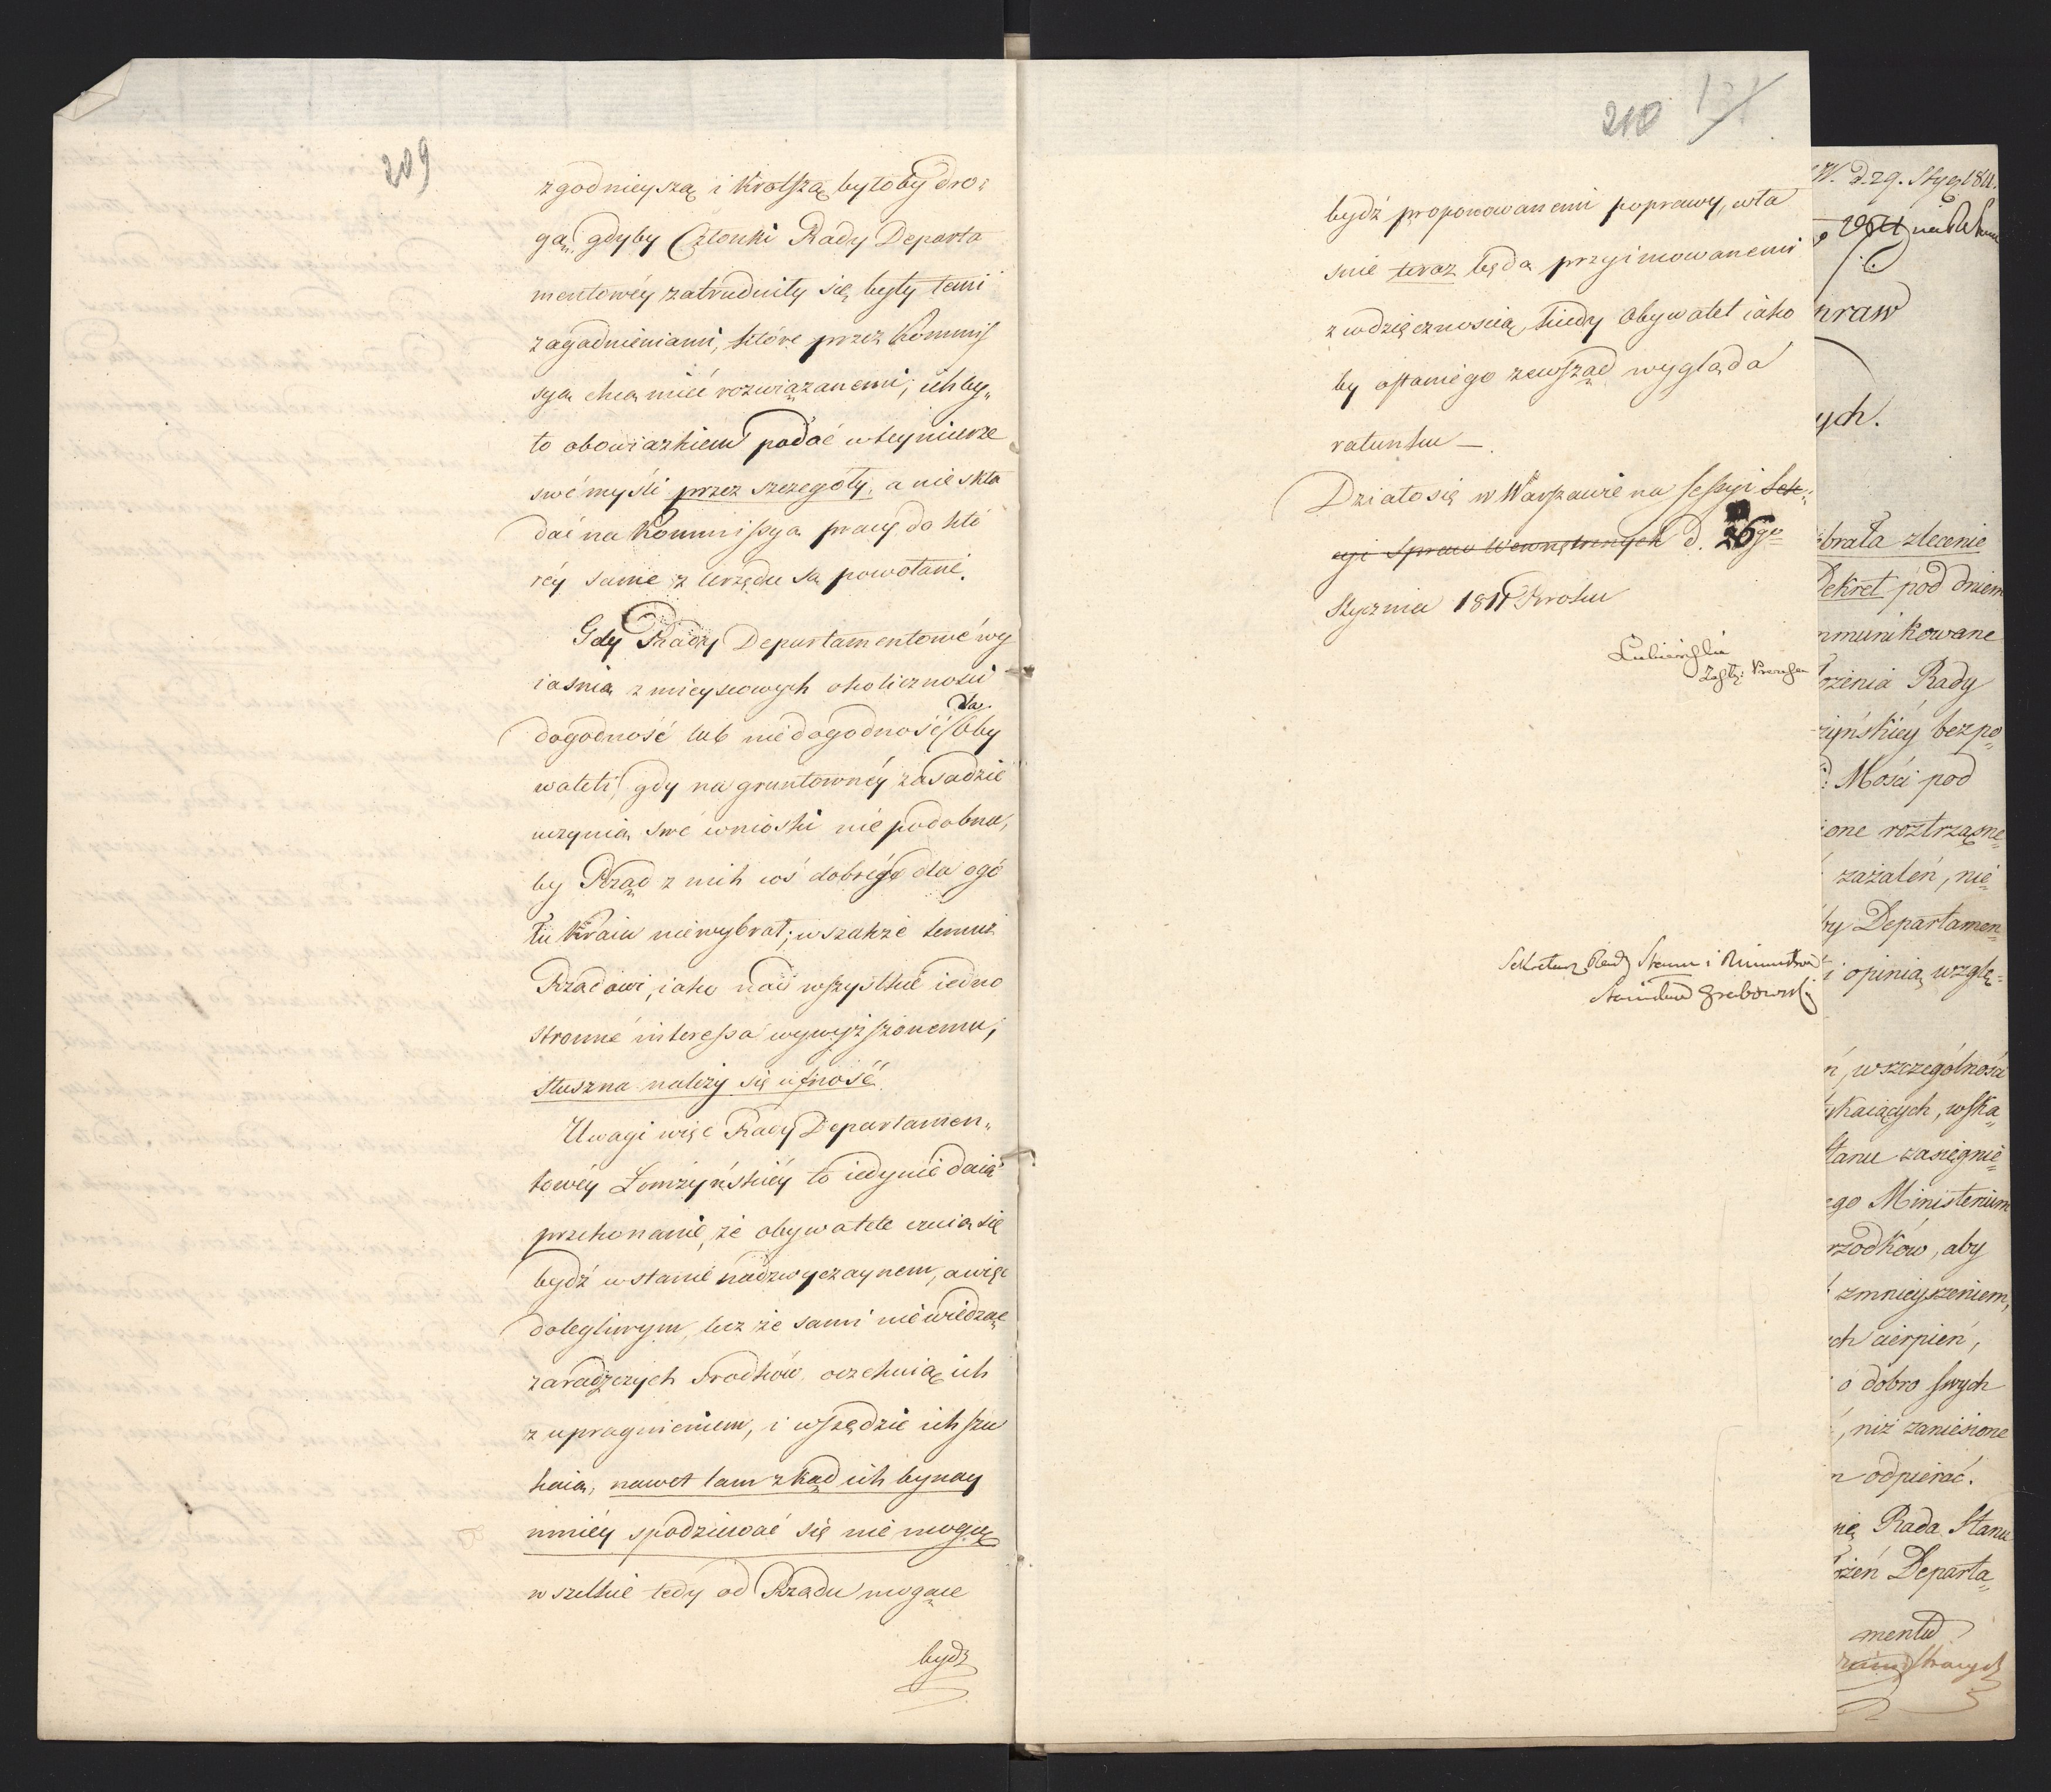 209
zgodnieyszą i krotszą byłoby dro:
gą, gdyby Członki Rady Departa
mentowéy zatrudniły się były temi
zagadnieniami, które przez Kommis
syą chcą mieć rozwiązanemi; ich by„
ło obowiązkiem podać w tey mierze
swé myśli przez szczegóły, a nie skła
dać na Kommissyą pracy do któ
réy same z Urzędu są powołane.
Gdy Rady Departamentowé wy
iaśnią z mieyscowych okoliczności
dogodność lub niedogodność dla Oby
wateli, gdy na gruntownéy zasadzie
uczynią swé wnioski nie podobna,
by Rząd z nich coś dobrégo dla ogó
łu Kraiu nie wybrał; wszakże temuż
Rządowi, iako nad wszystkie iedno
stronné interessa wywyższonemu,
słuszna należy się ufność.
Uwagi więc Rady Departamen„
towéy Łomżyńskiéy to iedynie daią
przekonanié, że obywatele czuią się
bydź w stanié nadzwyczaynem, a więc
dolegliwym, lecz że sami nie wiedząc
zaradczych srodków, oczekuią ich
z upragnieniem, i wszędzie ich szu
kaią, nawet tam zkąd ich bynay
mniéy spodziewać się nie mogą
wszelkie tedy od Rządu mogące
bydź
210 121
bydź proponowanemi poprawy, wła
snie teraz będą przyimowanemi
z wdzięcznoscią, kiedy Obywatel iako
by ostaniégo zewsząd wygląda
ratunku —
Działo się w Warszawie na sessyi Sek:
cyi Spraw Wewnętrznych d. 26go
Stycznia 1811 Roku
Lubieński
Zastę: Prezesa
Sekretarz Rady Stanu i Ministrów
Stanisław Grabowski
W. d. 29. Stycz 1811.
praw
ych.
ebrała zlecenie
Dekret pod dniem
mmunikowane
ożenia Rady
żyńskiéy bezpo„
: Mości pod
ione roztrząsne„
zażaleń, nie„
by Departamen„
i opinią wzglę„
ń, w szczególności
tykaiących, wska„
Stanu zasięgnie„
ego Ministerium
rzodków, aby
zmnieyszeniem,
ch cierpień,
o dobro swych
, niż zaniesione
n odpierać.
nię Rada Stanu
ożeń Departa„
mentu